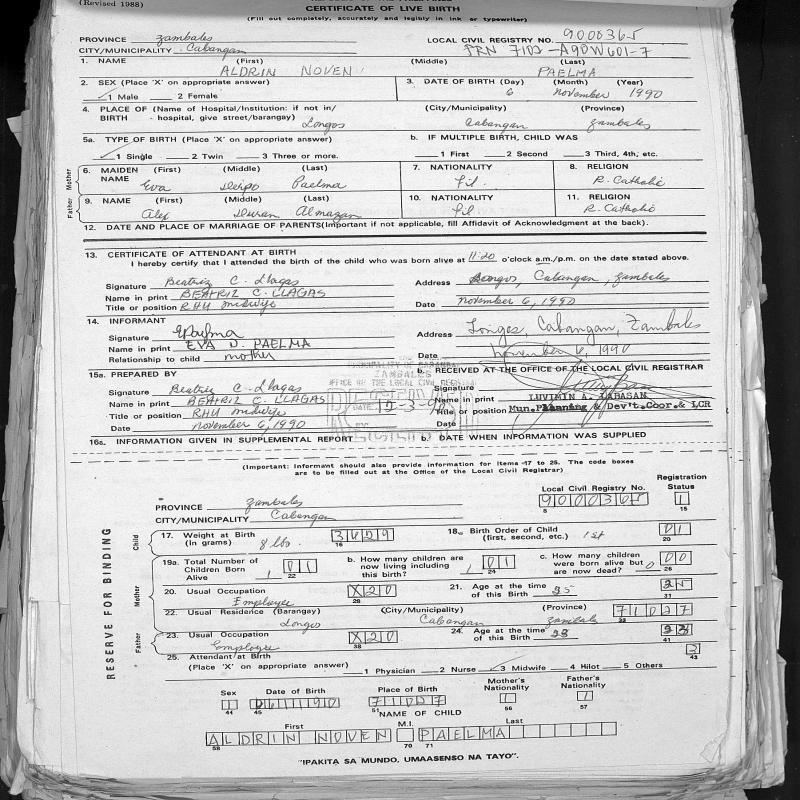 (Revised 1988)
CERTIFICATE OF LIVE BIRTH
(Fill out completely, accurately and legibly in ink or typewriter)
PROVINCE Zambales LOCAL CIVIL REGISTRY NO. 9000365
CITY/MUNICIPALITY Cabangan
1. NAME (First) (Middle) (Last)
ALDRIN NOVEN PAELMA
2. SEX (Place 'X' on appropriate answer) 3. DATE OF BIRTH (Day) (Month) (Year)
1 Male 2 Female 6 November 1990
4. PLACE OF (Name of Hospital/Institution: if not in/ (City/Municipality) (Province)
BIRTH - hospital, give street/barangay) Longos Cabangan Zambales
5a. TYPE OF BIRTH (Place 'X' on appropriate answer) b. IF MULTIPLE BIRTH, CHILD WAS
1 Single 2 Twin 3 Three or more. 1 First 2 Second 3 Third, 4th, etc.
Mother 6. MAIDEN NAME (First) (Middle) (Last) 7. NATIONALITY 8. RELIGION
Eva Paelma Fil. R. Catholic
Father 9. NAME (First) (Middle) (Last) 10. NATIONALITY 11. RELIGION
Alex Duran Almazan Fil R. Catholic
12. DATE AND PLACE OF MARRIAGE OF PARENTS(Important if not applicable, fill Affidavit of Acknowledgment at the back).
13. CERTIFICATE OF ATTENDANT AT BIRTH
I hereby certify that I attended the birth of the child who was born alive at 11:20 o'clock a.m./p.m. on the date stated above.
Signature Beatriz C. Llagas Address Longos, Cabangan, Zambales
Name in print BEATRIZ C. LLAGAS
Title or position RHU Midwife Date November 6, 1990
14. INFORMANT
Signature EPaelma Address Longos, Cabangan, Zambales
Name in print EVA D. PAELMA
Relationship to child mother Date November 6, 1990
15a. PREPARED BY b. RECEIVED AT THE OFFICE OF THE LOCAL CIVIL REGISTRAR
ZAMBALES
OFFICE OF THE LOCAL CIVIL REGISTRAR
Signature Beatriz C. Llagas Signature
Name in print BEATRIZ C. LLAGAS Name in print LUVIMIN A. LABASAN
Title or position RHU Midwife Title or position Mun. Planning & Dev't. Coor. & LCR
Date November 6, 1990 Date
16a. INFORMATION GIVEN IN SUPPLEMENTAL REPORT b. DATE WHEN INFORMATION WAS SUPPLIED
(Important: Informant should also provide information for items 17 to 25. The code boxes
are to be filled out at the Office of the Local Civil Registrar)
RESERVE FOR BINDING
Local Civil Registry No. Registration Status
PROVINCE Zambales 9000365 1
CITY/MUNICIPALITY Cabangan 5 15
Child 17. Weight at Birth (In grams) 8 lbs. 3629 16 18. Birth Order of Child (first, second, etc.) 1st 01 20
Mother 19a. Total Number of Children Born Alive 1 01 22 b. How many children are now living including this birth? 1 01 24 c. How many children were born alive but are now dead? 0 00 26
20. Usual Occupation Employee X20 28 21. Age at the time of this Birth 25 25 31
22. Usual Residence (Barangay) (City/Municipality) (Province) 71027 33
Longos Cabangan Zambales
Father 23. Usual Occupation Employee X20 38 24. Age at the time of this Birth 41
25. Attendant at Birth 3 43
(Place 'X' on appropriate answer) 1 Physician 2 Nurse 3 Midwife 4 Hilot 5 Others
Sex Date of Birth Place of Birth Mother's Nationality Father's Nationality
1 71027 1 1
44 45 51 56 57
NAME OF CHILD
First M.I. Last
ALDRIN NOVEN PAELMA
58 70 71
"IPAKITA SA MUNDO, UMAASENSO NA TAYO".